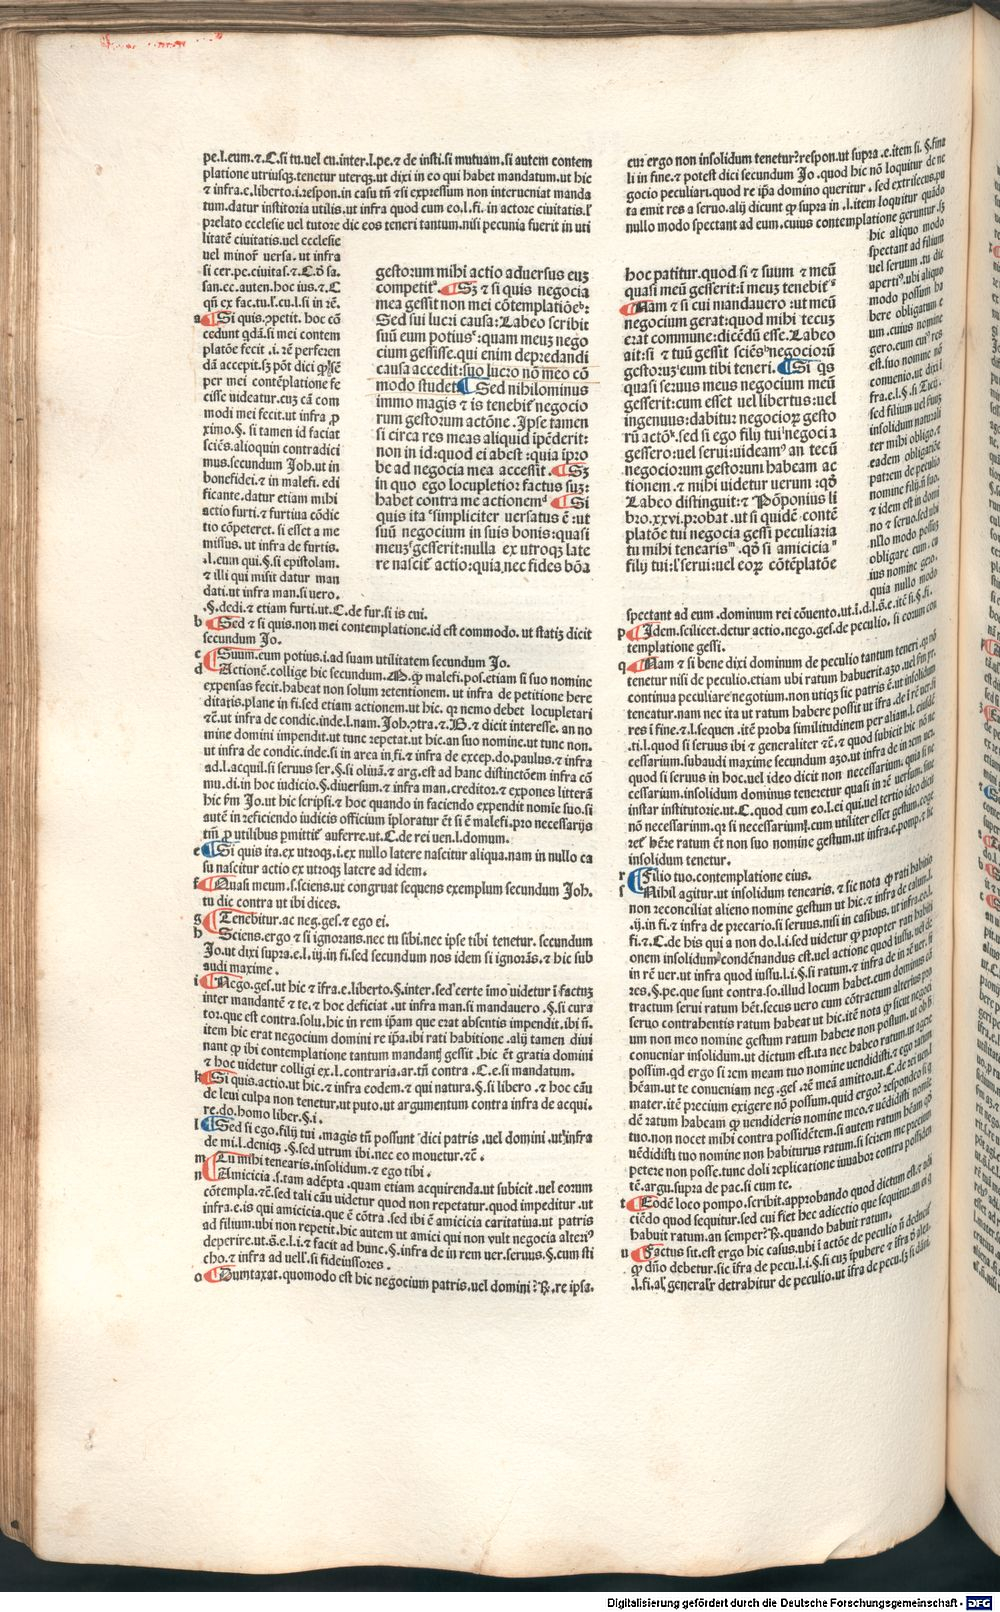 pe.l.eum.⁊.C.si tu.uel cu.inter.l.pe.⁊ de insti.si mutuam.si autem contem
platione utriusqꝫ.tenetur uterqꝫ.ut dixi in eo qui habet mandatum.ut hic
⁊ infra.e.liberto.i.respon.in casu tñ ⁊si expressum non interueniat manda
tum.datur institoria utilis.ut infra quod cum eo.l.fi.in actore ciuitatis.
prelato ecclesie uel tutore dic eos teneri tantum.nisi pecunia fuerit in uti
litatē ciuitatis.uel ecclesie
uel minor⁹ uersa.ut infra
si cer.pe.ciuitas.⁊.C.
san.ec.auten.hoc ius.⁊.C
qñ ex fac.tu.
a Si quis.ꝯpetit. hoc cō
cedunt qdā.si mei contem
platōe fecit .i.rē perferen
dā accepit.
per mei contēplatione fe
cisse uideatur.
modi mei fecit.ut infra ꝓ
ximo.§.si tamen id faciat
sciēs.alioquin contradici
mus.secundum Joh.ut in
bonefidei.⁊ in malefi.edi
ficante.datur etiam mihi
actio furti.⁊ furtiua cōdic
tio cōpeteret.si esset a me
missus.ut infra de furtis.
.l.eum qui.§.si epistolam.
⁊ illi qui misit datur man
dati.ut infra man.si uero.
.§.dedi.⁊ etiam furti.ut.C.de fur.si is cui.
b Sed ⁊ si quis.non mei contemplatione.id est commodo.ut statiꝫ dicit
secundum Jo.
c Suum.eum potius.i.ad suam utilitatem secundum Jo.
d Actionē.collige hic secundum.M.ꝙ malefi.pos.etiam si suo nomine
expensas fecit.habeat non solum retentionem.ut infra de petitione here
ditatis.plane in fi.sed etiam actionem.ut hic.qꝛ nemo debet locupletari
⁊ē.ut infra de condic.inde.l.nam.Joh.ꝯtra.⁊.B.⁊ dicit interesse.an no
mine domini impendit.ut tunc repetat.ut hic.an suo nomine.ut tunc non.
ut infra de condic.inde.si in area in fi.⁊ infra de excep.do.paulus.⁊ infra
ad.l.acquil.si seruus ser.§.si oliuā.⁊ arg.est ad hanc distinctōem infra cō
mu.di.in hoc iudicio.§.diuersum.⁊ infra man.creditor.⁊ expones litterā
hic ẜm Jo.ut hic scripsi.⁊ hoc quando in faciendo expendit nomie suo.si
autē in reficiendo iudicis officium iploratur ēt si ē malefi.pro necessarijs
tm̄ ꝓ utilibus ꝑmittit᷑ auferre.ut.C.de rei uen.l.domum.
e Si quis ita.ex utroqꝫ.i.ex nullo latere nascitur aliqua.nam in nullo ca
su nascitur actio ex utroqꝫ latere ad idem.
f Quasi meum.s.sciens.ut congruat sequens exemplum secundum Joh.
tu dic contra ut ibi dices.
g Tenebitur.ac neg.ges.⁊ ego ei.
h Sciens.ergo ⁊ si ignorans.nec tu sibi.nec ipse tibi tenetur. secundum
Jo.ut dixi supra.e.l.iij.in fi.sed secundum nos idem si ignorās.⁊ hic sub
audi maxime.
i Nego.ges.ut hic ⁊ ifra.e.liberto.§.inter.sed certe imo uidetur
inter mandantē ⁊ te.⁊ hoc deficiat .ut infra man.si mandauero .§.si cura
tor.que est contra.solu.hic in rem ipam que erat absentis impendit.ibi ñ.
item hic erat negocium domini re ipa.ibi rati habitione .alij tamen diui
nant ꝙ ibi contemplatione tantum mandantꝭ gessit .hic ēt gratia domini
⁊ hoc uidetur colligi ex.l.contraria.ar.tñ contra .C.e.si mandatum.
k Si quis.actio.ut hic.⁊ infra eodem.⁊ qui natura.§.si libero .⁊ hoc cāu
de leui culpa non tenetur.ut puto.ut argumentum contra infra de acqui.
re.do.homo liber.§.i.
l Sed si ego.filij tui .magis tñ possunt dici patris .uel domini .ut infra
de mi.l.deniqꝫ .§.sed utrum ibi.nec eo mouetur.⁊ē.
m Tu mihi tenearis.insolidum.⁊ ego tibi.
n Amicicia .s.tam adēpta .quam etiam acquirenda.ut subicit .uel eorum
cōtempla.⁊ē.sed tali cāu uidetur quod non repetatur.quod impeditur .ut
infra.e.is qui amicicia.que ē cōtra .sed ibi ē amicicia caritatiua.ut patris
ad filium.ubi non repetit.hic autem ut amici qui non uult negocia alteri⁹
deperire.ut.s.e.l.i.⁊ facit ad hunc.§.infra de in rem uer.seruus.§.cum sti
cho.⁊ infra ad uell.si fideiussores.
o Dumtaxat.quomodo est hic negocium patris.uel domini?R⁊.re ipsa.
gestorum mihi actio aduersus euꝫ
competit.ᵃ Sꝫ ⁊ si quis negocia
mea gessit non mei cōtemplatiōeᵇ:
Sed sui lucri causa:Labeo scribit
suū eum potiusᶜ:quam meuꝫ nego
cium gessisse.qui enim depredandi
causa accedit:suo lucro nō meo cō
modo studet Sed nihilominus
immo magis ⁊ is tenebit᷑ negocio
rum gestorum actōne .Ipse tamen
si circa res meas aliquid ipēderit:
non in id:quod ei abest :quia ipro
be ad negocia mea accessit. Sꝫ
in quo ego locupletior factus suꝫ:
habet contra me actionemᵈ Si
quis ita ᵉsimpliciter uersatus ē :ut
suū negocium in suis bonis:quasi
meuꝫᶠgesserit:nulla ex utroqꝫ late
re nascit᷑ actio:quia nec fides bōa
hoc patitur.quod si ⁊ suum ⁊ meū
quasi meū gesserit:i meuꝫ tenebit᷑ᵍ
Nam ⁊ si cui mandauero :ut meū
negocium gerat:quod mihi tecuꝫ
erat commune:dicēdū esse.Labeo
ait:si ⁊ tuū gessit sciēsʰnegociorū
gestoruꝫⁱeum tibi teneri. Si qs
quasi seruus meus negocium meū
gesserit:cum esset uel libertus:uel
ingenuus:dabitur negocioꝝ gesto
rū actōᵏ.sed si ego filij tuiˡnegocia
gessero:uel serui:uideamᵍ an tecū
negociorum gestorum habeam ac
tionem.⁊ mihi uidetur uerum :qō
Labeo distinguit:⁊ Pōponius li
bro.xxvi.probat.ut si quidē contē
platōe tui negocia gessi peculiaria
tu mihi tenearisᵐ .qō si amiciciaⁿ
filij tui:ł serui:uel eoꝝ cōtēplatōe
cur ergo non insolidum tenetur?respon.ut supra .e.item si. §.fina
li in fine.⁊ potest dici secundum Jo .quod hic nō loquitur de ne
gocio peculiari.quod re ipa domino queritur . sed extrisecus.pu
ta emit res a seruo.alij dicunt ꝙ supra in .l.item loquitur quādo
nullo modo spectant ad eum.cuius contemplatione geruntur.sꝫ
hic aliquo modo
spectant ad filium
uel seruum .tu dic
aperti⁹.ubi aliquo
modo possum ha
bere obligatum e
um.cuius nomine
gero.eum cui⁹ res
est.suo nomine nō
conuenio.ut dixi i
fra.e.l.§.si Ticij.
sed filium uel suum
insolidum naturali
ter mihi obligo.⁊
eadem obligatiōe
patrem de peculio
nomine filij.
⁊ idem est in domi
no ⁊ seruo.sed ubi
nllo modo possuꝫ
obligare eum . cu
ius nomine gero.
quia nullo modo
spectant ad eum .dominum rei cōuento.ut.i.d.l.s.e.itē si.§.fi.
p Idem.scilicet.detur actio.nego.ges.de peculio. si eorum con
templatione gessi.
q Nam ⁊ si bene dixi dominum de peculio tantum teneri. nō
tenetur nisi de peculio.etiam ubi ratum habuerit.azo.uel
continua peculiare negotium.non utiqꝫ sic patris ē.ut insolidum
teneatur.nam nec ita ut ratum habere possit ut ifra.
res i fine.⁊.l.sequen .itē proba similitudinem per aliam.l.
.ti.l.quod si seruus ibi ⁊ generaliter ⁊ē.⁊ quod subicit hic nō ne
cessarium.subaudi maxime secundum azo.ut infra de in rem uer.
quod si seruus in hoc.uel ideo dicit non necessarium. quia si ne
cessarium.insolidum dominus teneretur quasi in rē uersum. siue
instar institutorie.ut.C.quod cum eo.l.ei qui.uel tertio ideo dicit
nō necessarium.qꝛ si necessarium.cum utiliter esset gestum.
hēre ratum ēt non suo nomine gestum.ut infra.e.pomp.⁊ hic
insolidum tenetur.
r Filio tuo.contemplatione eius.
s Nihil agitur.ut insolidum tenearis. ⁊ sic nota ꝙ rati habitio
non reconciliat alieno nomine gestum ut hic.⁊ infra de calum.l.
.ij.in fi.⁊ infra de precario.si seruus.nisi in casibus.ut infra.eo.l.
fi.⁊.C.de his qui a non do.l.i.sed uidetur ꝙ propter rati habiti
onem insolidum condēnandus est.uel actione quod iussu.uel de
in rē uer.ut infra quod iussu.l.i.§.si ratum.⁊ infra de in rē uer.
res.§.pe.que sunt contra.so.illud locum habet.cum dominus cō
tractum serui ratum hēt.secus uero cum cōtractum alterius pro
seruo contrahentis ratum habeat ut hic.itē nota ꝙ sicut negoci
um non meo nomine gestum ratum habere non possum.ut ob hᵒ
conueniar insolidum.ut dictum est.ita nec habeo ratum.ut agere
possim.qd ergo si rem meam tuo nomine uendidisti.⁊ ego ratum
hēam.ut te conueniam neg.ges .rē meā amitto.ut.C.de rei uen.l
mater.itē precium exigere nō possum.quid ergo?respondeo si q̄
dē ratum habeam ꝙ uendideris nomine meo.⁊ uēdidisti nomīe
tuo.non nocet mihi contra possidētem.si autem ratum hēam qd
uēdidisti tuo nomine non habiturus ratum.si scirem me precium
petere non posse.tunc doli replicatione iuuabor contra possiden
tē.argu.supra de pac.si cum te.
t Eodē loco pompo.scribit.approbando quod dictum est.⁊ adi
ciēdo quod sequitur.sed cui fiet hec adiectio que sequitur.an ei q
habuit ratum.an semper?R⁊.quando habuit ratum.
u Factus sit.est ergo hic casus.ubi i actōe de peculio ñ deducit᷑
ꝙ dño debetur.sic ifra de pecu.l.i.§.si cuꝫ ipubere ⁊ ifra
.l.fi.al generalr detrahitur de peculio.ut ifra de pecu.sꝫ si dām.
Digitalisierung gefördert durch die Deutsche Forschungsgemeinschaft - DFG